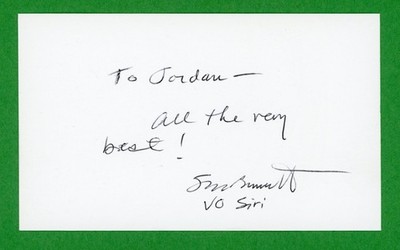 To Jordan —
All the very
best!
Susan Bennett
VO Siri